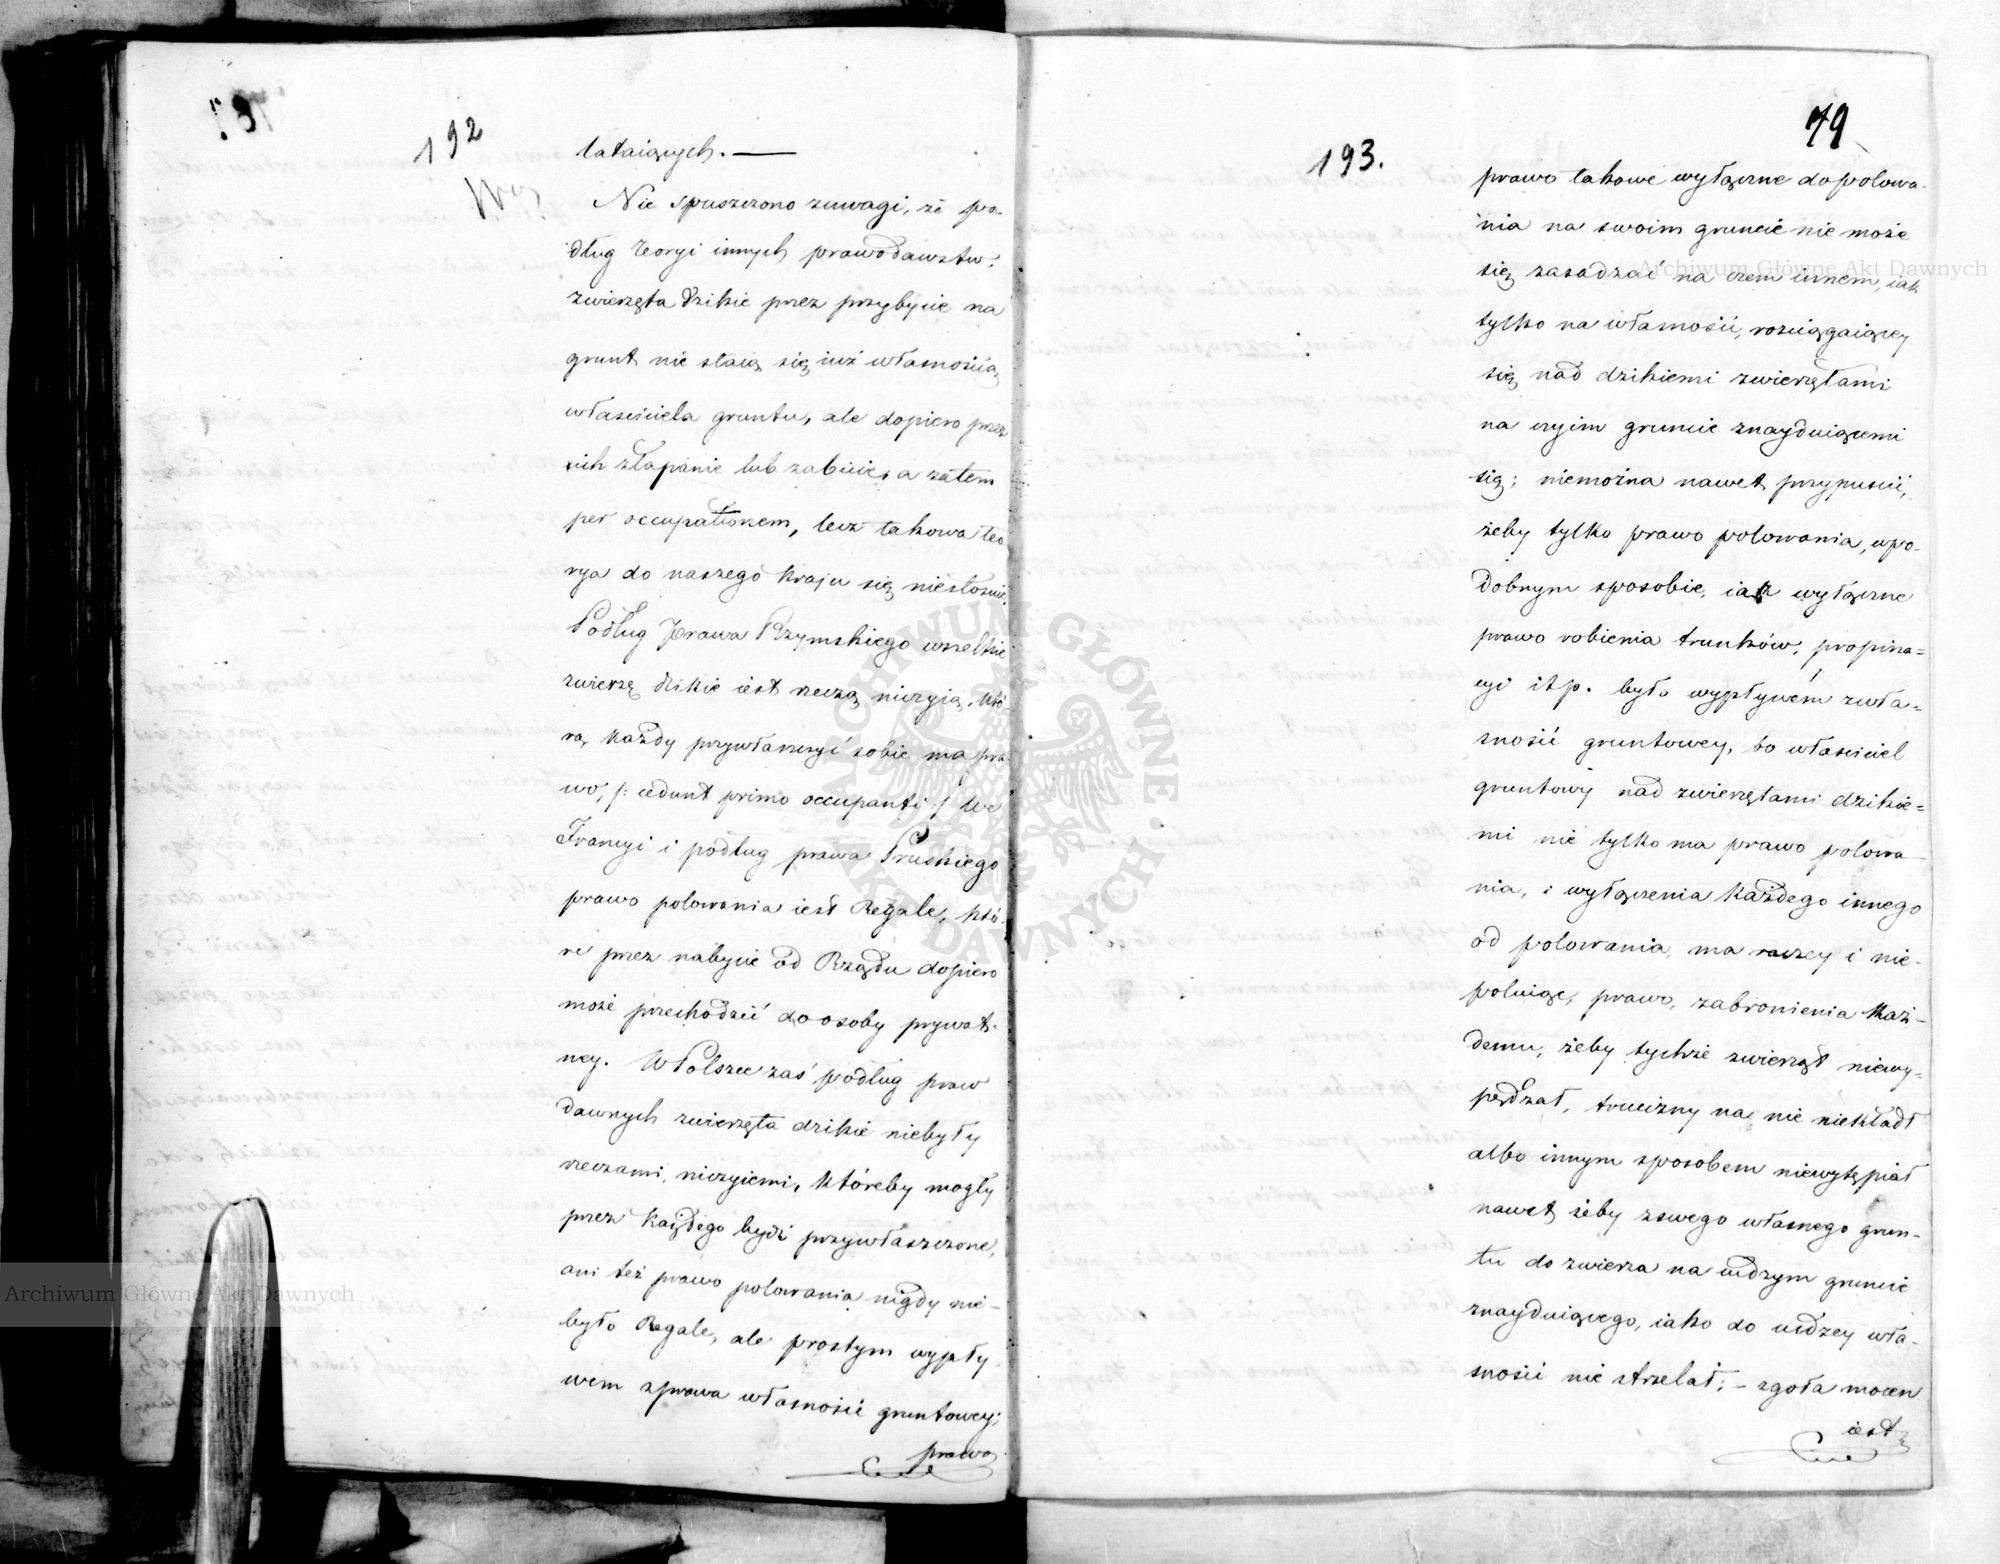 192
lataiących. —
Nie spuszczono zuwagi, że po-
dług teoryi innych prawodawstw.
zwierzęta dzikie przez przybycie na
grunt nie staią się iuż własnością
właściciela gruntu, ale dopiero przez
ich złapanie lub zabicie, a zatem
per occupationem, lecz takowa teo
rya do naszego kraju się niestosuie.
Podług Prawa Rzymskiego wszelkie
zwierzę dzikie iest rzeczą niczyią, któ-
rą każdy przywłaszczyć sobie ma pra-
wo, /: cedunt primo occupanti :/ We
Francyi i podług prawa Pruskiego
prawo polowania iest Regale, któ-
re przez nabycie od Rządu dopiero
może przechodzić do osoby prywat-
ney. W Polszcze zaś podług praw
dawnych zwierzęta dzikie niebyły
rzeczami, niczyiemi, któreby mogły
przez każdego bydź przywłaszczone,
ani też prawo polowania nigdy nie-
było Regale, ale prostym wypły-
wem zprawa własności gruntowey;
prawo
79
193.
prawo takowe wyłączne do polowa-
nia na swoim gruncie nie może
się zasadzać na czem innem, iak
tylko na własności, rosciągaiącey
się nad dzikiemi zwierzętami
na czyim gruncie znayduiącemi
się; niemożna nawet przypuścić,
żeby tylko prawo polowania, wpo-
dobnym sposobie, iak wyłączne
prawo robienia trunków, propina=
cyi itp. było wypływem zwła=
sności gruntowey, bo właściciel
gruntowy nad zwierzętami dzikie=
mi nie tylko ma prawo polowa-
nia, i wyłączenia każdego innego
od polowania, ma raczey i nie-
poluiąc, prawo, zabronienia każ-
demu, żeby tychże zwierząt niewy-
pędzał, trucizny na nie niekładł
albo innym sposobem niewytępiał
nawet żeby zswego własnego grun-
tu do zwierza na cudzym gruncie
znayduiącego, iako do cudzey wła-
sności nie strzelał; – zgoła mocen
iest
Archiwum Główne Akt Dawnych
Archiwum Główne Akt Dawnych
ARCHIWUM GŁÓWNE · AKT DAWNYCH ·